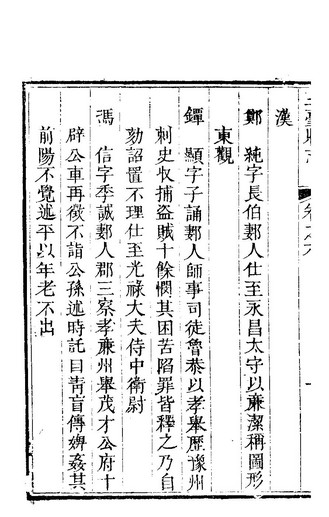 漢
鄭 純字長伯郪人仕至永昌太守以亷潔稱圖形
東觀
鐔 顯字子誦郪人師事司徒魯恭以孝舉歷豫州
刺史收捕盜賊十餘憫其困苦陷罪皆釋之乃自
劾詔置不理仕至光祿大夫侍中衛尉
馮 信字季誠郪人郡三察孝亷州舉茂才公府十
辟公車再徵不詣公孫述時託目靑盲傳婢姦其
前陽不覺述平以年老不出